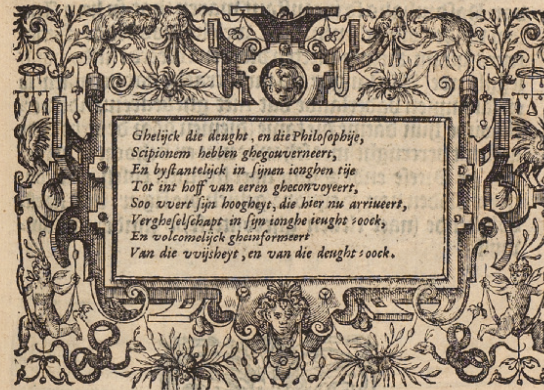 Ghelijck die deught, en die Philosophije,
Scipionem hebben ghegouverneert,
En bystantelijck in sijnen ionghen tije
Tot int hoff van eeren gheconvoyeert,
Soo vvert sijn hoogheyt, die hier nu arriueert,
Vergheselschapt in sijn ionghe ieught :oock,
En volcomelijck gheinformeert
Van die vvijsheyt, en van die deught :oock.